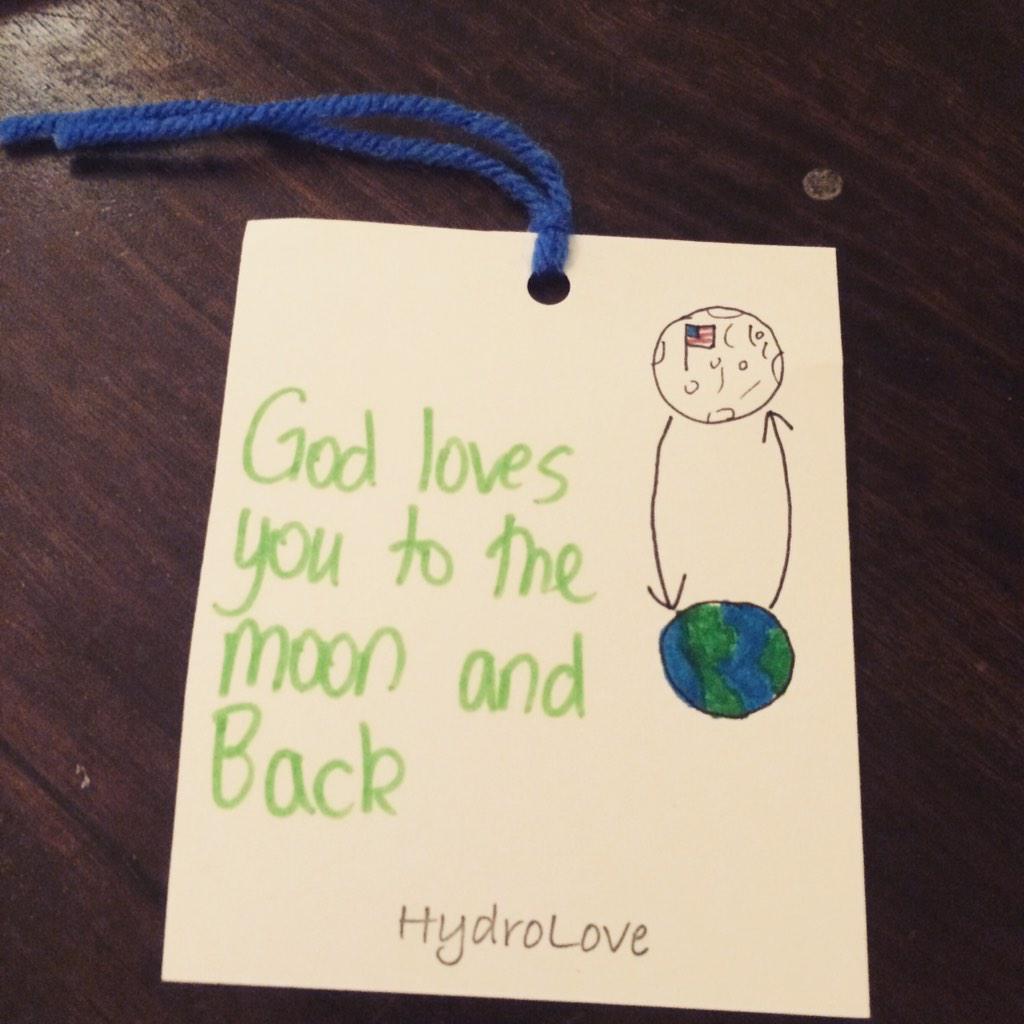 God loves
you to the
moon and
Back
HydroLove